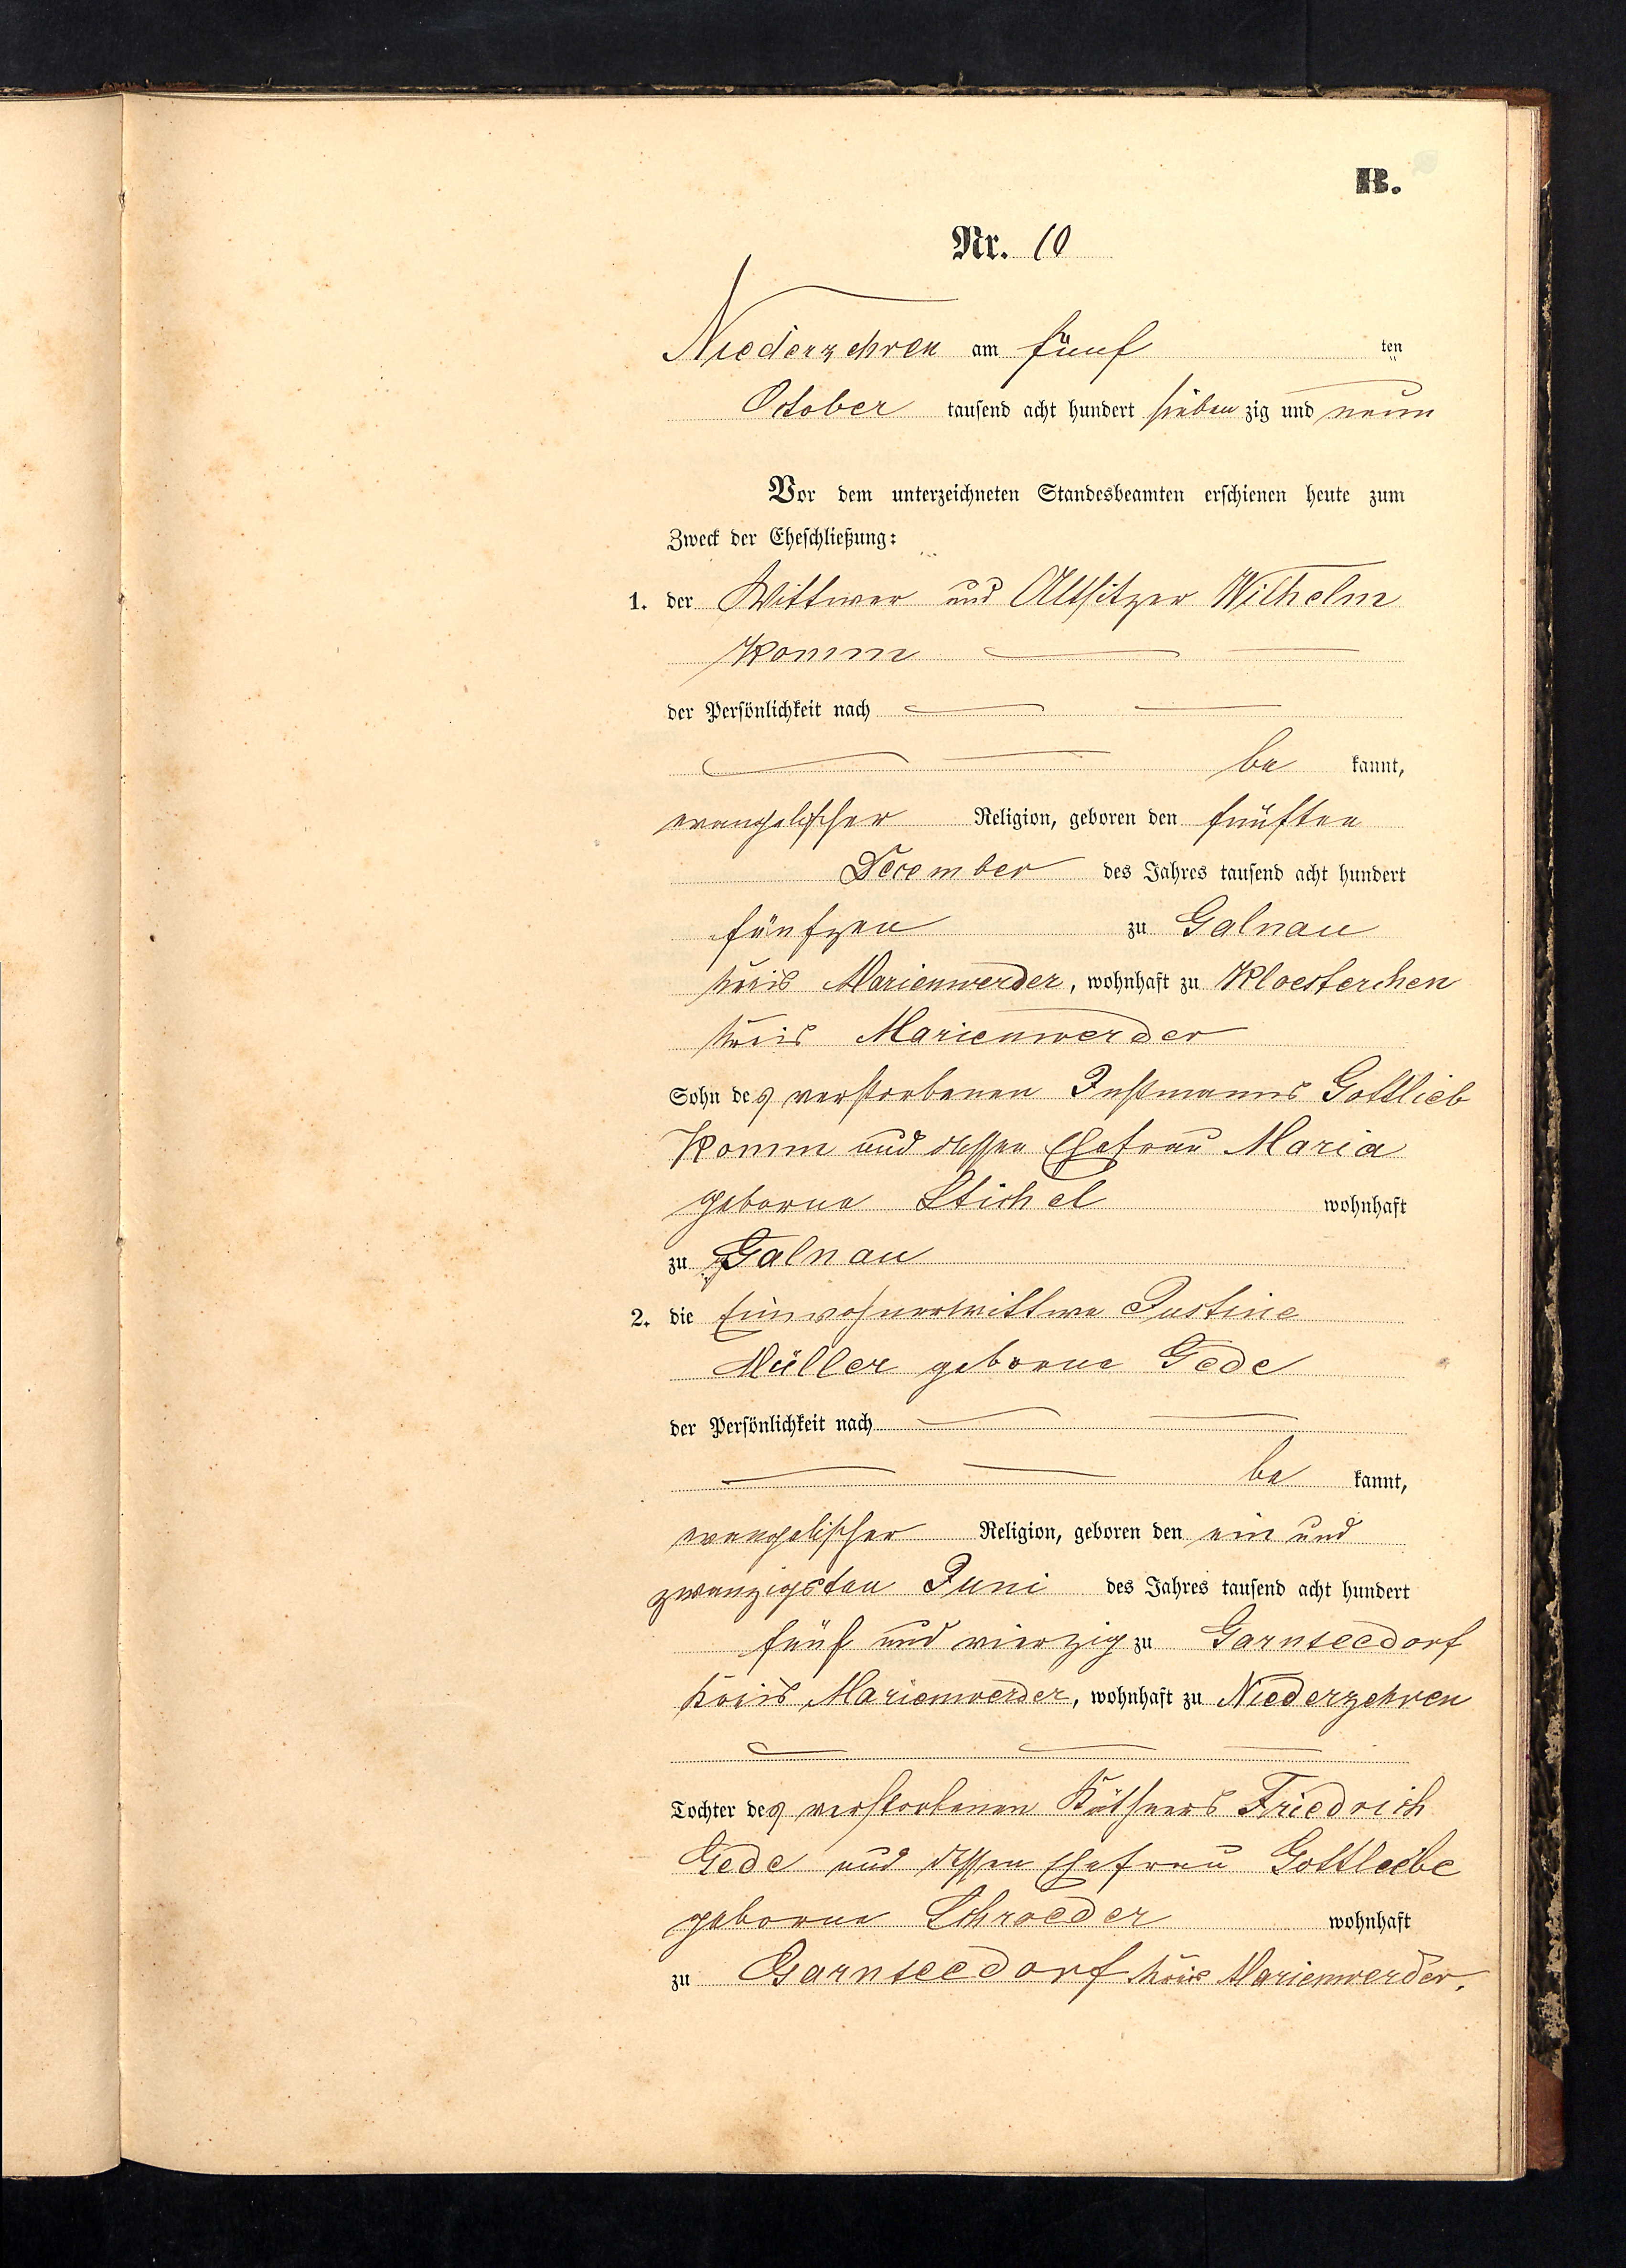 B.
Nr. 10
Niederzehren am fünf ten
October tausend acht hundert sieben zig und neun
Vor dem unterzeichneten Standesbeamten erschienen heute zum
Zweck der Eheschließung:
1. der Wittwer und Altsitzer Wilhelm
Komm
der Persönlichkeit nach
be kannt,
evangelischer Religion, geboren den fünften
December des Jahres tausend acht hundert
fünfzen zu Galnau
Kreis Marienwerder, wohnhaft zu Kloesterchen
Kreis Marienwerder
Sohn des verstorbenen Instmanns Gottlieb
Komm und dessen Ehefrau Maria
geborne Stichel wohnhaft
zu Galnau
2. die Einwohnerwittwe Justine
Müller geborne Gede
der Persönlichkeit nach
be kannt,
evangelischer Religion, geboren den ein und
zwanzigsten Juni des Jahres tausend acht hundert
fünf und vierzig zu Garnseedorf
Kreis Marienwerder, wohnhaft zu Niederzehren
Tochter des verstorbenen Käthners Friedrich
Gede und dessen Ehefrau Gottliebe
geborne Schroeder wohnhaft
zu Garnseedorf Kreis Marienwerder.